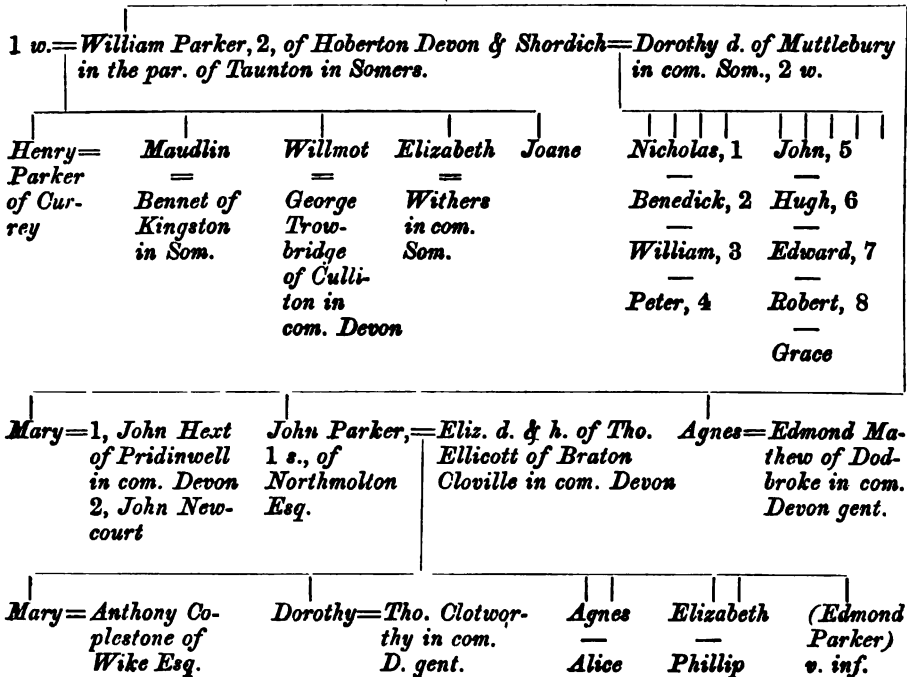 1 w.=William Parker, 2, of Hoberton Devon & Shordich=Dorothy d. of Muttlebury
in the par. of Taunton in Somers.
in com. Som., 2 w.
Henry=
Parker
of Cur-
rey
Maudlin
=
Bennet of
Kingston
in Som.
Willmot
=
George
Trow-
bridge
of Culli-
ton in
com. Devon
Elizabeth
=
Withers
in com.
Som.
Joane
Nicholas, 1
—
Benedick, 2
—
William, 3
—
Peter, 4
John, 5
—
Hugh, 6
—
Edward, 7
—
Robert, 8
—
Grace
Mary=1, John Hext
of Pridinwell
in com. Devon
2, John New-
court
John Parker,=
1 s., of
Northmolton
Esq.
Eliz. d. & h. of Tho.
Ellicott of Braton
Cloville in com. Devon
Agnes=Edmond Ma-
thew of Dod-
broke in com.
Devon gent.
Mary=Anthony Co-
plestone of
Wike Esq.
Dorothy=Tho. Clotwor-
thy in com.
D. gent.
Agnes
—
Alice
Elizabeth
—
Phillip
(Edmond
Parker)
v. inf.